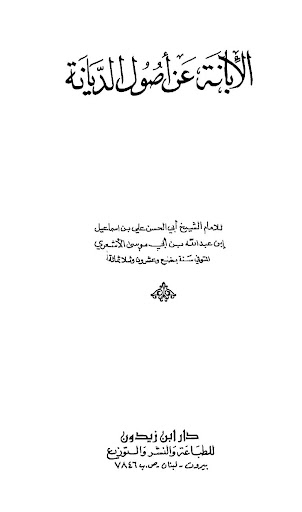 الإبانة عن أصول الديانة
للامام الشيخ أبي الحسن علي بن اسماعيل
إبن عبدالله بن أبي موسى الأشعري
المتوفى سنة بضع وعشرون وثلاثمائة
دار ابن زيدون
للطباعة والنشر والتوزيع
بيروت - لبنان ص.ب ٧٨٤٦